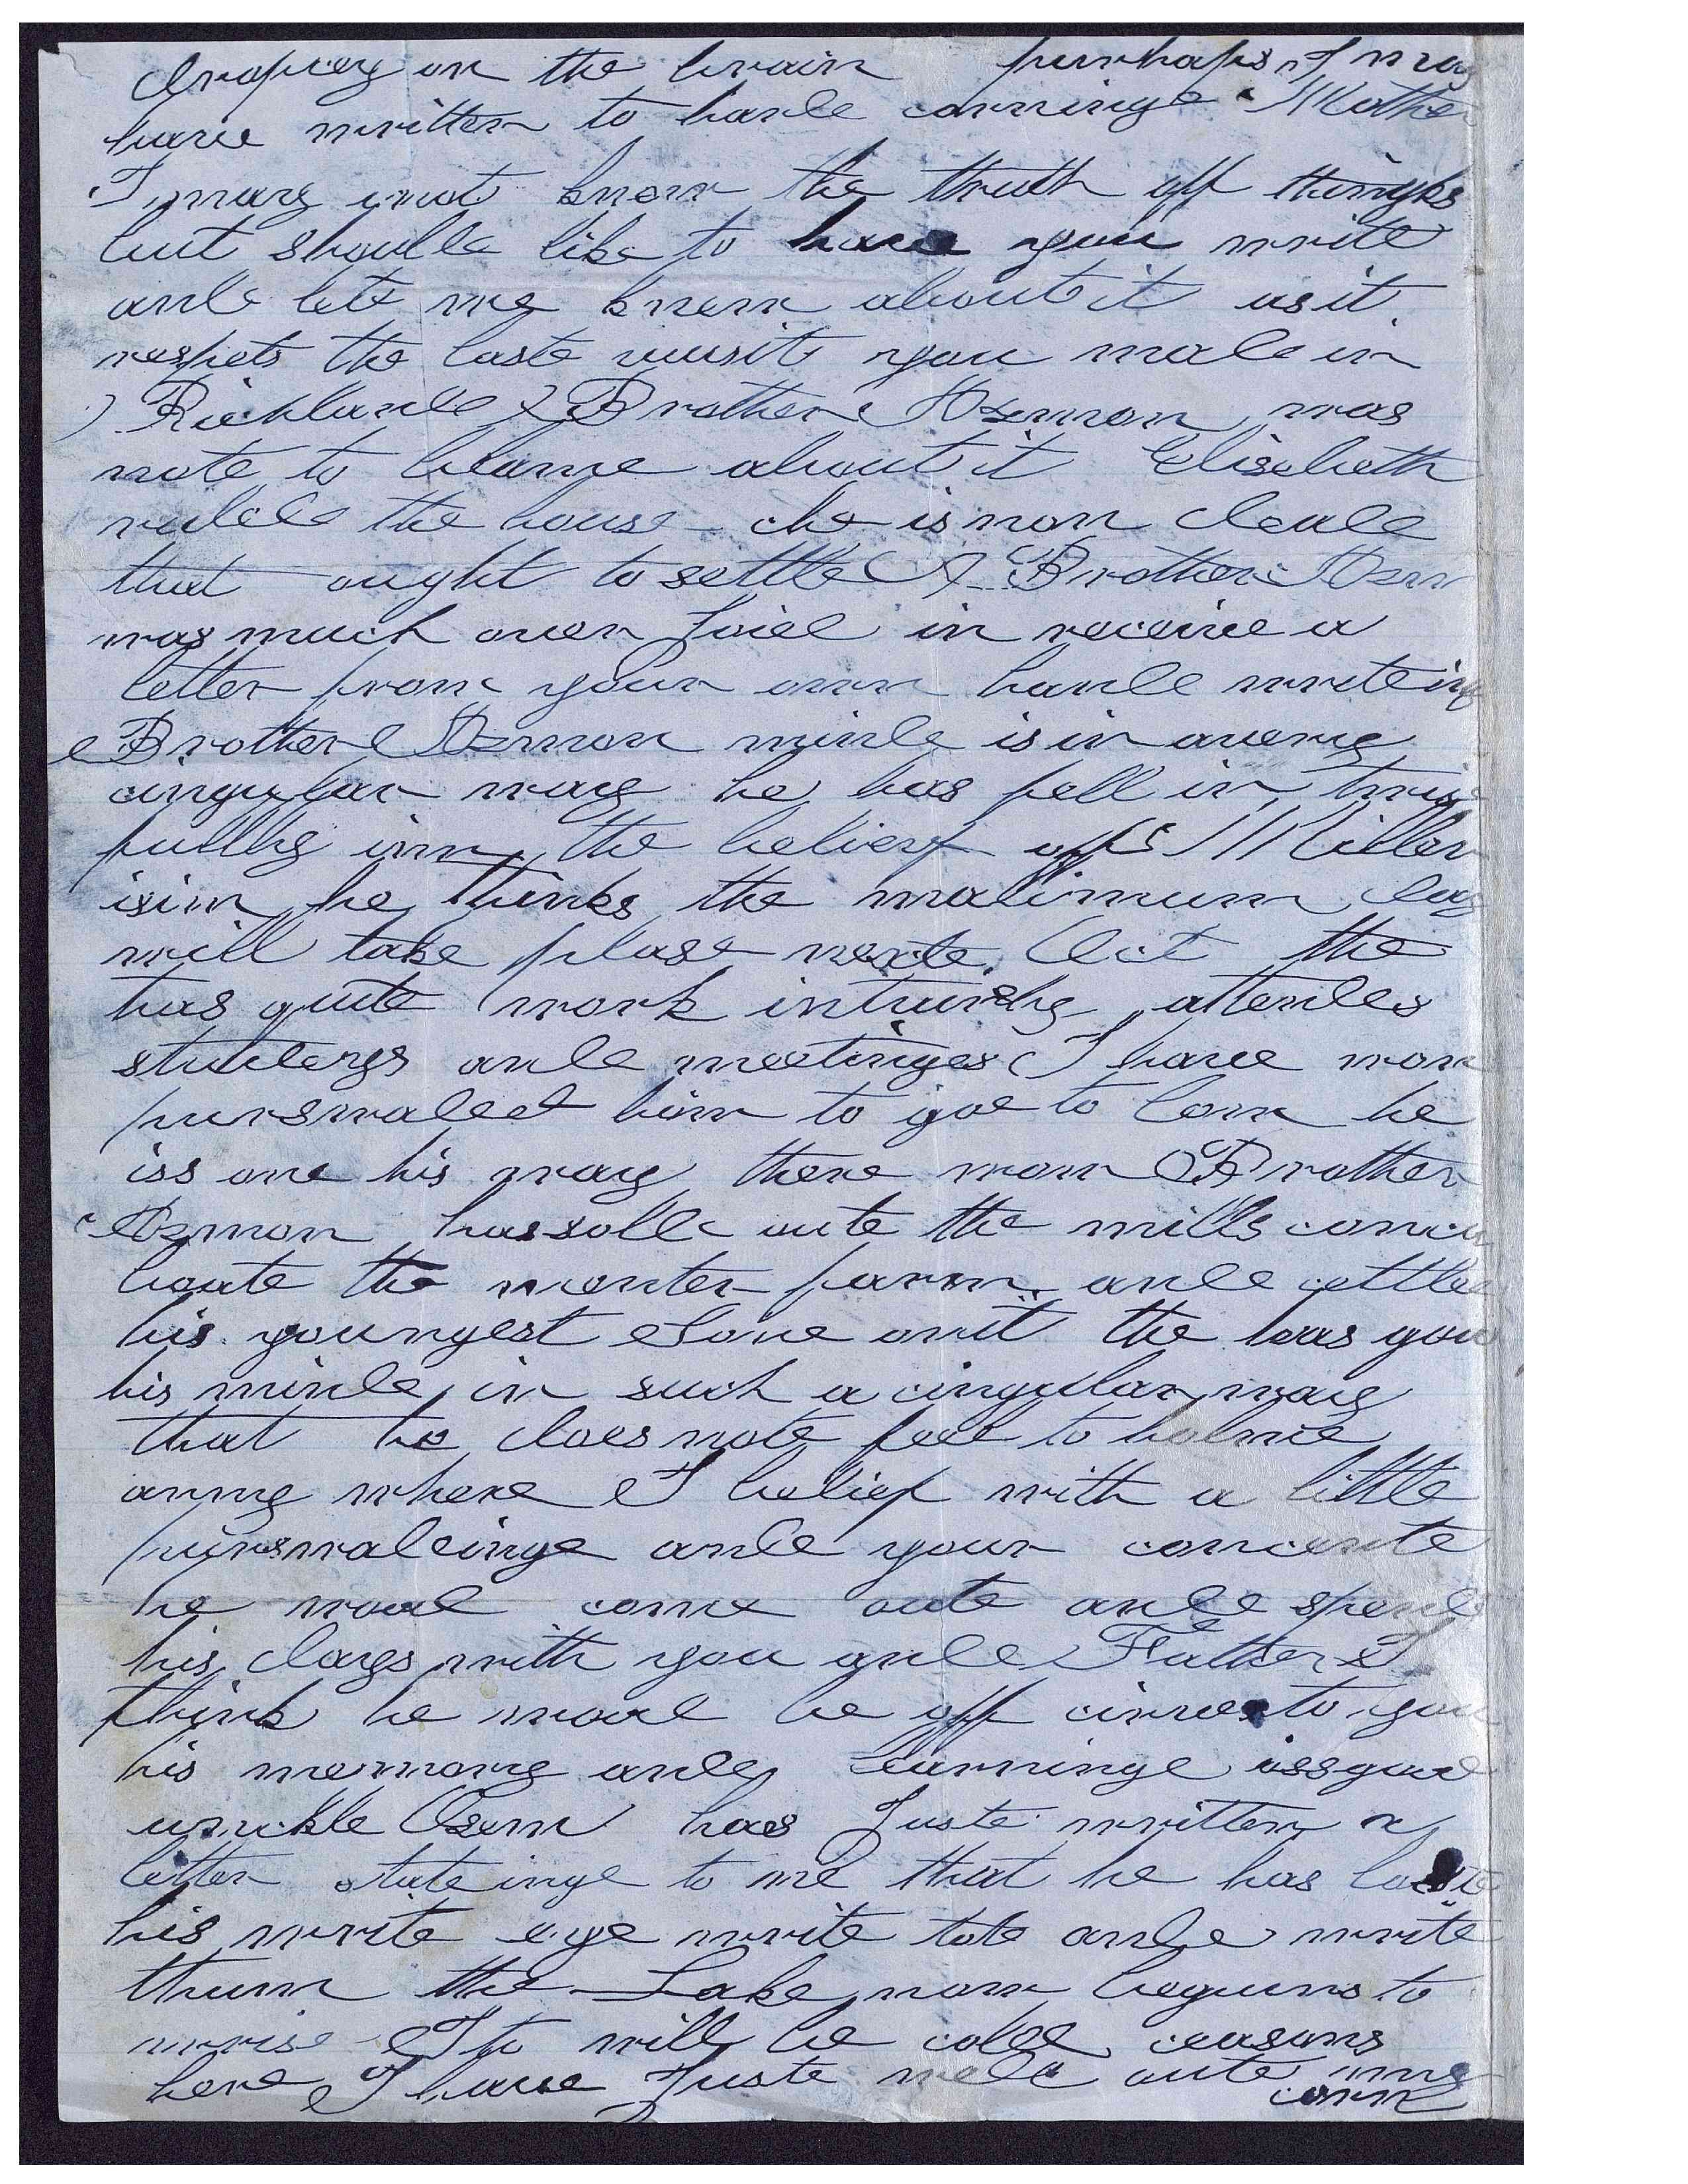 Dropcey on the brain purhaps I may
have written to harde corringe Mother
I may not know the truth off thingks
but should like to have you write
and let me know about it as it
respets the laste viusit you made in
Richland Brother Harmon was
note to blame about it Elisabeth
ruled the house che is now Dead
that ought to settle Brother Harm
was much over Joied in receive a
letter from your own hande writeing
Brother Harmon minde is in avery
cingular way he has fell in
fullhy inn the belief off Miller
isim he thinks the malinnum day
will take plase nexte Oct the
has quite work intursly attendes
studeys and meetinges I have now
purswaded him to goe to
iss one his way there now Brother
Harmon has solde oute the mills
boute the farm and cettled
his youngest Sone onit the has got
his minde in such a cingular way
that he does note feel to
anny where I belief with a little
purswadeinge and your concente
he woud come oute and spend
his days with you and Father I
think he woud be off to you
his memory and learninge iss good
unckle has Juste written a
letter stateinge to me that he has loste
his write eye write tote and write
thum the Lake now beguns to
wrise It will be colde ceasons
here I have Juste oute my
corn